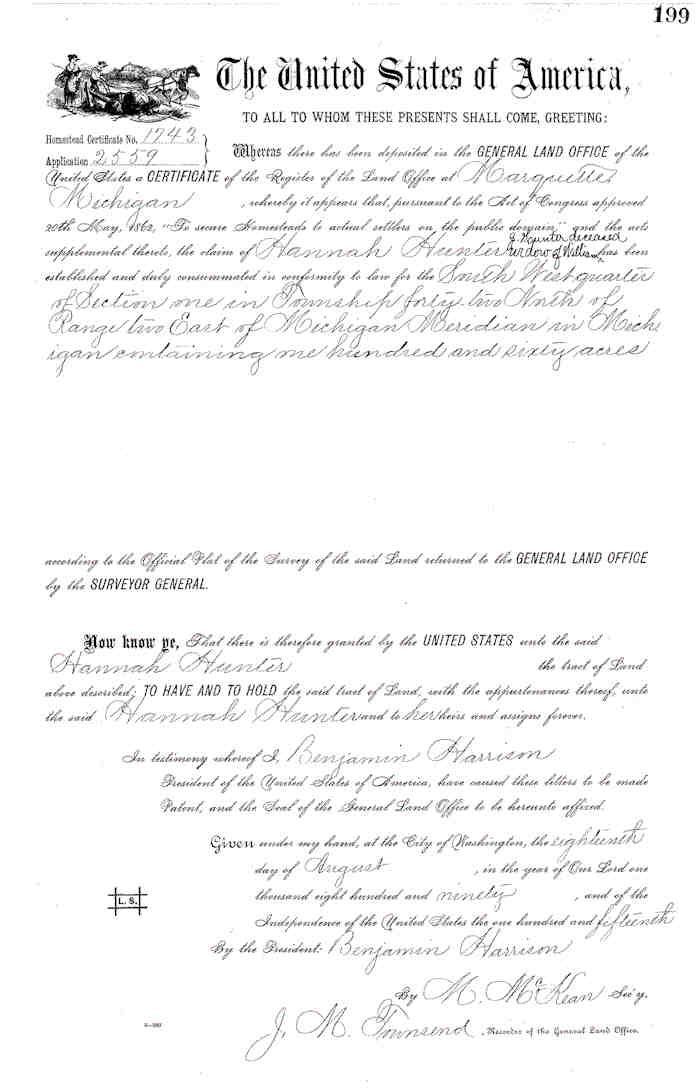 199
The United States of America,
TO ALL TO WHOM THESE PRESENTS SHALL COME, GREETING:
Homestead Certificate No. 1743
Application 2559
Whereas there has been deposited in the GENERAL LAND OFFICE of the
United States a CERTIFICATE of the Register of the Land Office at Marquette
Michigan , whereby it appears that, pursuant to the Act of Congress approved
20th May, 1862, "To secure Homesteads to actual settlers on the public domain" and the acts
supplemental thereto, the claim of Hannah Hunter widow of William J. Hunter deceased has been
established and duly consummated in conformity to law for the South West quarter
of Section one in Township forty two North of
Range two East of Michigan Meridian in Mich
igan containing one hundred and sixty acres
according to the Official Plat of the Survey of the said Land returned to the GENERAL LAND OFFICE
by the SURVEYOR GENERAL.
Now know ye, That there is therefore granted by the UNITED STATES unto the said
Hannah Hunter the tract of Land
above described; TO HAVE AND TO HOLD the said tract of Land, with the appurtenances thereof, unto
the said Hannah Hunter and to her heirs and assigns forever.
In testimony whereof I, Benjamin Harrison
President of the United States of America, have caused these letters to be made
Patent, and the Seal of the General Land Office to be hereunto affixed.
Given under my hand, at the City of Washington, the eighteenth
day of August , in the year of Our Lord one
thousand eight hundred and ninety , and of the
Independence of the United States the one hundred and fifteenth
L. S.
By the President: Benjamin Harrison
By M. McKean Sec'y.
J. M. Townsend , Recorder of the General Land Office.